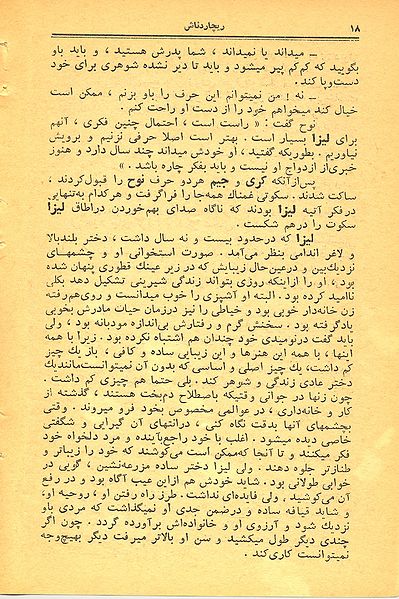 ۱۸ ریچاردناش
— میداند یا نمیداند ، شما پدرش هستید ، و باید باو
بگویید که کم‌کم پیر میشود و باید تا دیر نشده شوهری برای خود
دست‌وپا کند .
— نه ! من نمیتوانم این حرف را باو بزنم ، ممکن است
خیال کند میخواهم خود را از دست او راحت کنم .
نوح گفت : « راست است ، احتمال چنین فکری ، آنهم
برای لیزا بسیار است . بهتر است اصلا حرفی نزنیم و برویش
نیاوریم . بطوریکه گفتید ، او خودش میداند چند سال دارد و هنوز
خبری‌از ازدواج او نیست و باید بفکر چاره باشد . »
پس‌از آنکه کری و جیم هردو حرف نوح را قبول‌کردند ،
ساکت شدند . سکوتی غمناك همه‌جا را فراگرفت و هرکدام به‌تنهایی
درفکر آتیه لیزا بودند که ناگاه صدای بهم‌خوردن دراطاق لیزا
سکوت را درهم شکست .
لیزا که درحدود بیست و نه سال داشت ، دختر بلندبالا
و لاغر اندامی بنظر می‌آمد . صورت استخوانی او و چشمهای
نزدیك‌بین و درعین‌حال زیبایش که در زیر عینك قطوری پنهان شده
بود ، او را ازاینکه روزی بتواند زندگی شیرینی تشکیل دهد بکلی
ناامید کرده بود . البته او آشپزی را خوب میدانست و روی‌هم‌رفته
زن خانه‌دار خوبی بود و خیاطی را نیز درزمان حیات مادرش بخوبی
یادگرفته بود . سخنش گرم و رفتارش بی‌اندازه مودبانه بود ، ولی
باید گفت درنومیدی خود چندان هم اشتباه نکرده بود . زیرا با همه
اینها ، با همه این هنرها و این زیبایی ساده و کافی ، باز یك چیز
کم داشت، یك چیز اصلی و اساسی که بدون آن نمیتوانست‌مانندیك
دختر عادی زندگی و شوهر کند . بلی حتما هم چیزی کم داشت .
چون زنها در جوانی وقتیکه باصطلاح دم‌بخت هستند ، گذشته از
کار و خانه‌داری ، در عوالمی مخصوص بخود فرو میروند . وقتی
بچشمهای آنها بدقت نگاه کنی ، درانتهای آن گیرایی و شگفتی
خاصی دیده میشود . اغلب با خود راجع‌بآینده و مرد دلخواه خود
فکر میکنند و تا آنجا که‌ممکن است می‌کوشند که خود را زیباتر و
طنازتر جلوه دهند . ولی لیزا دختر ساده مزرعه‌نشین ، گویی در
خوابی طولانی بود . شاید خودش هم ازاین عیب آگاه بود و در رفع
آن می‌کوشید ، ولی فایده‌ای نداشت . طرز راه رفتن او ، روحیه او،
و شاید قیافه ساده و درضمن جدی او نمیگذاشت که مردی باو
نزدیك شود و آرزوی او و خانواده‌اش برآورده گردد . چون اگر
چندی دیگر طول میکشید و سن او بالاتر میرفت دیگر بهیچ‌وجه
نمیتوانست کاری کند .